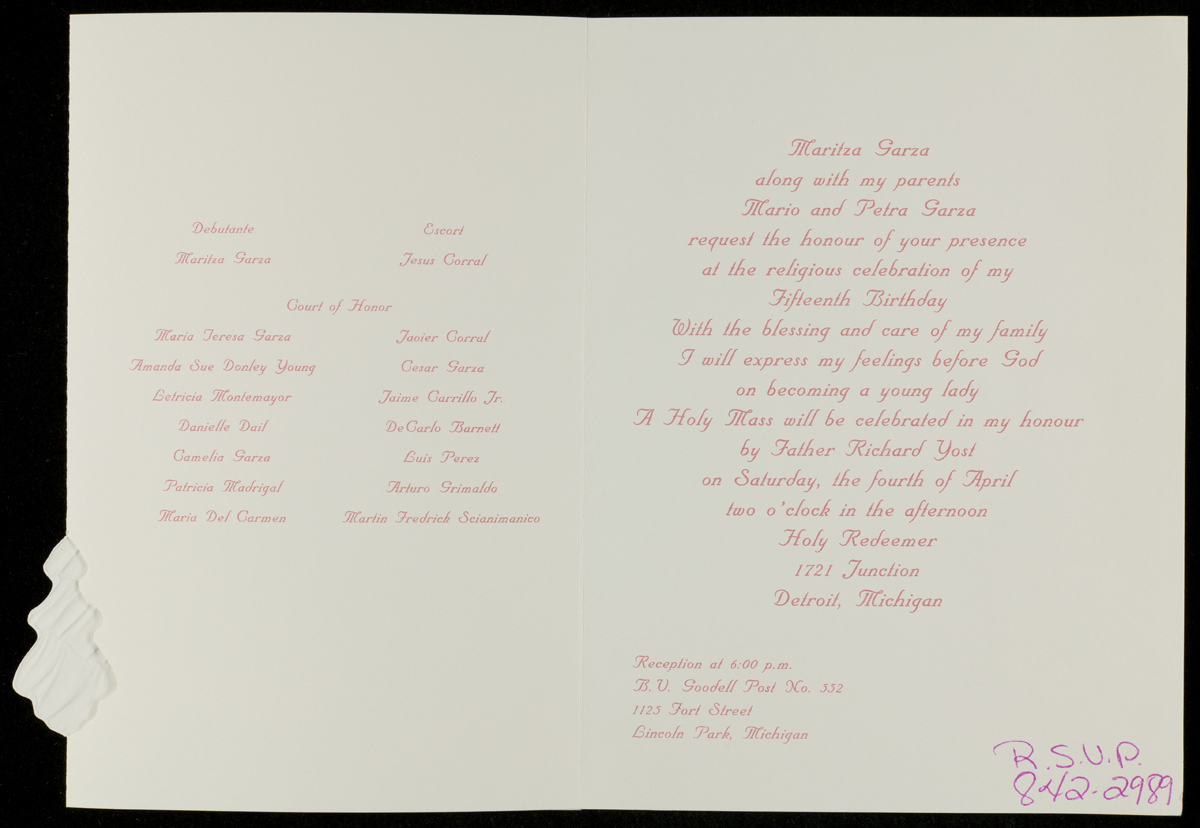 Debutante Escort
Maritza Garza Jesus Corral
Court of Honor
Maria Teresa Garza Javier Corral
Amanda Sue Donley Young Cesar Garza
Letricia Montemayor Jaime Carrillo Jr.
Danielle Dail DeCarlo Barnett
Camelia Garza Luis Perez
Patricia Madrigal Arturo Grimaldo
Maria Del Carmen Martin Fredrick Scianimanico
Maritza Garza
along with my parents
Mario and Petra Garza
request the honour of your presence
at the religious celebration of my
Fifteenth Birthday
With the blessing and care of my family
I will express my feelings before God
on becoming a young lady
A Holy Mass will be celebrated in my honour
by Father Richard Yost
on Saturday, the fourth of April
two o'clock in the afternoon
Holy Redeemer
1721 Junction
Detroit, Michigan
Reception at 6:00 p.m.
B.V. Goodell Post No. 552
1125 Fort Street
Lincoln Park, Michigan
R.S.V.P.
842-2989